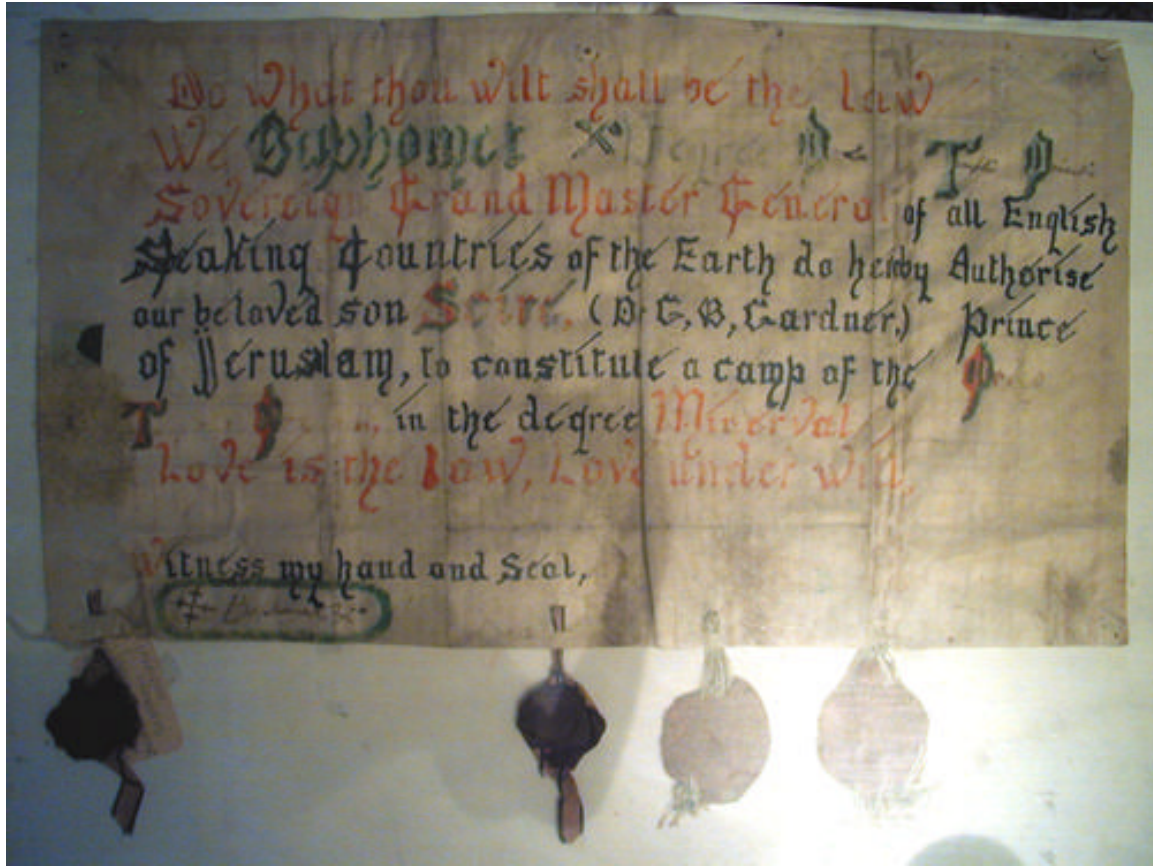 Do what thou wilt shall be the law
We Baphomet Degree
Sovereign Grand Master General of all English
Speaking Countries of the Earth do hereby Authorise
our beloved son Scire, (Dr G,B,Gardner,) Prince
of Jeruslam, to constitute a camp of the
T in the degree Minerval
Love is the law, Love under will,
Witness my hand and Seal,